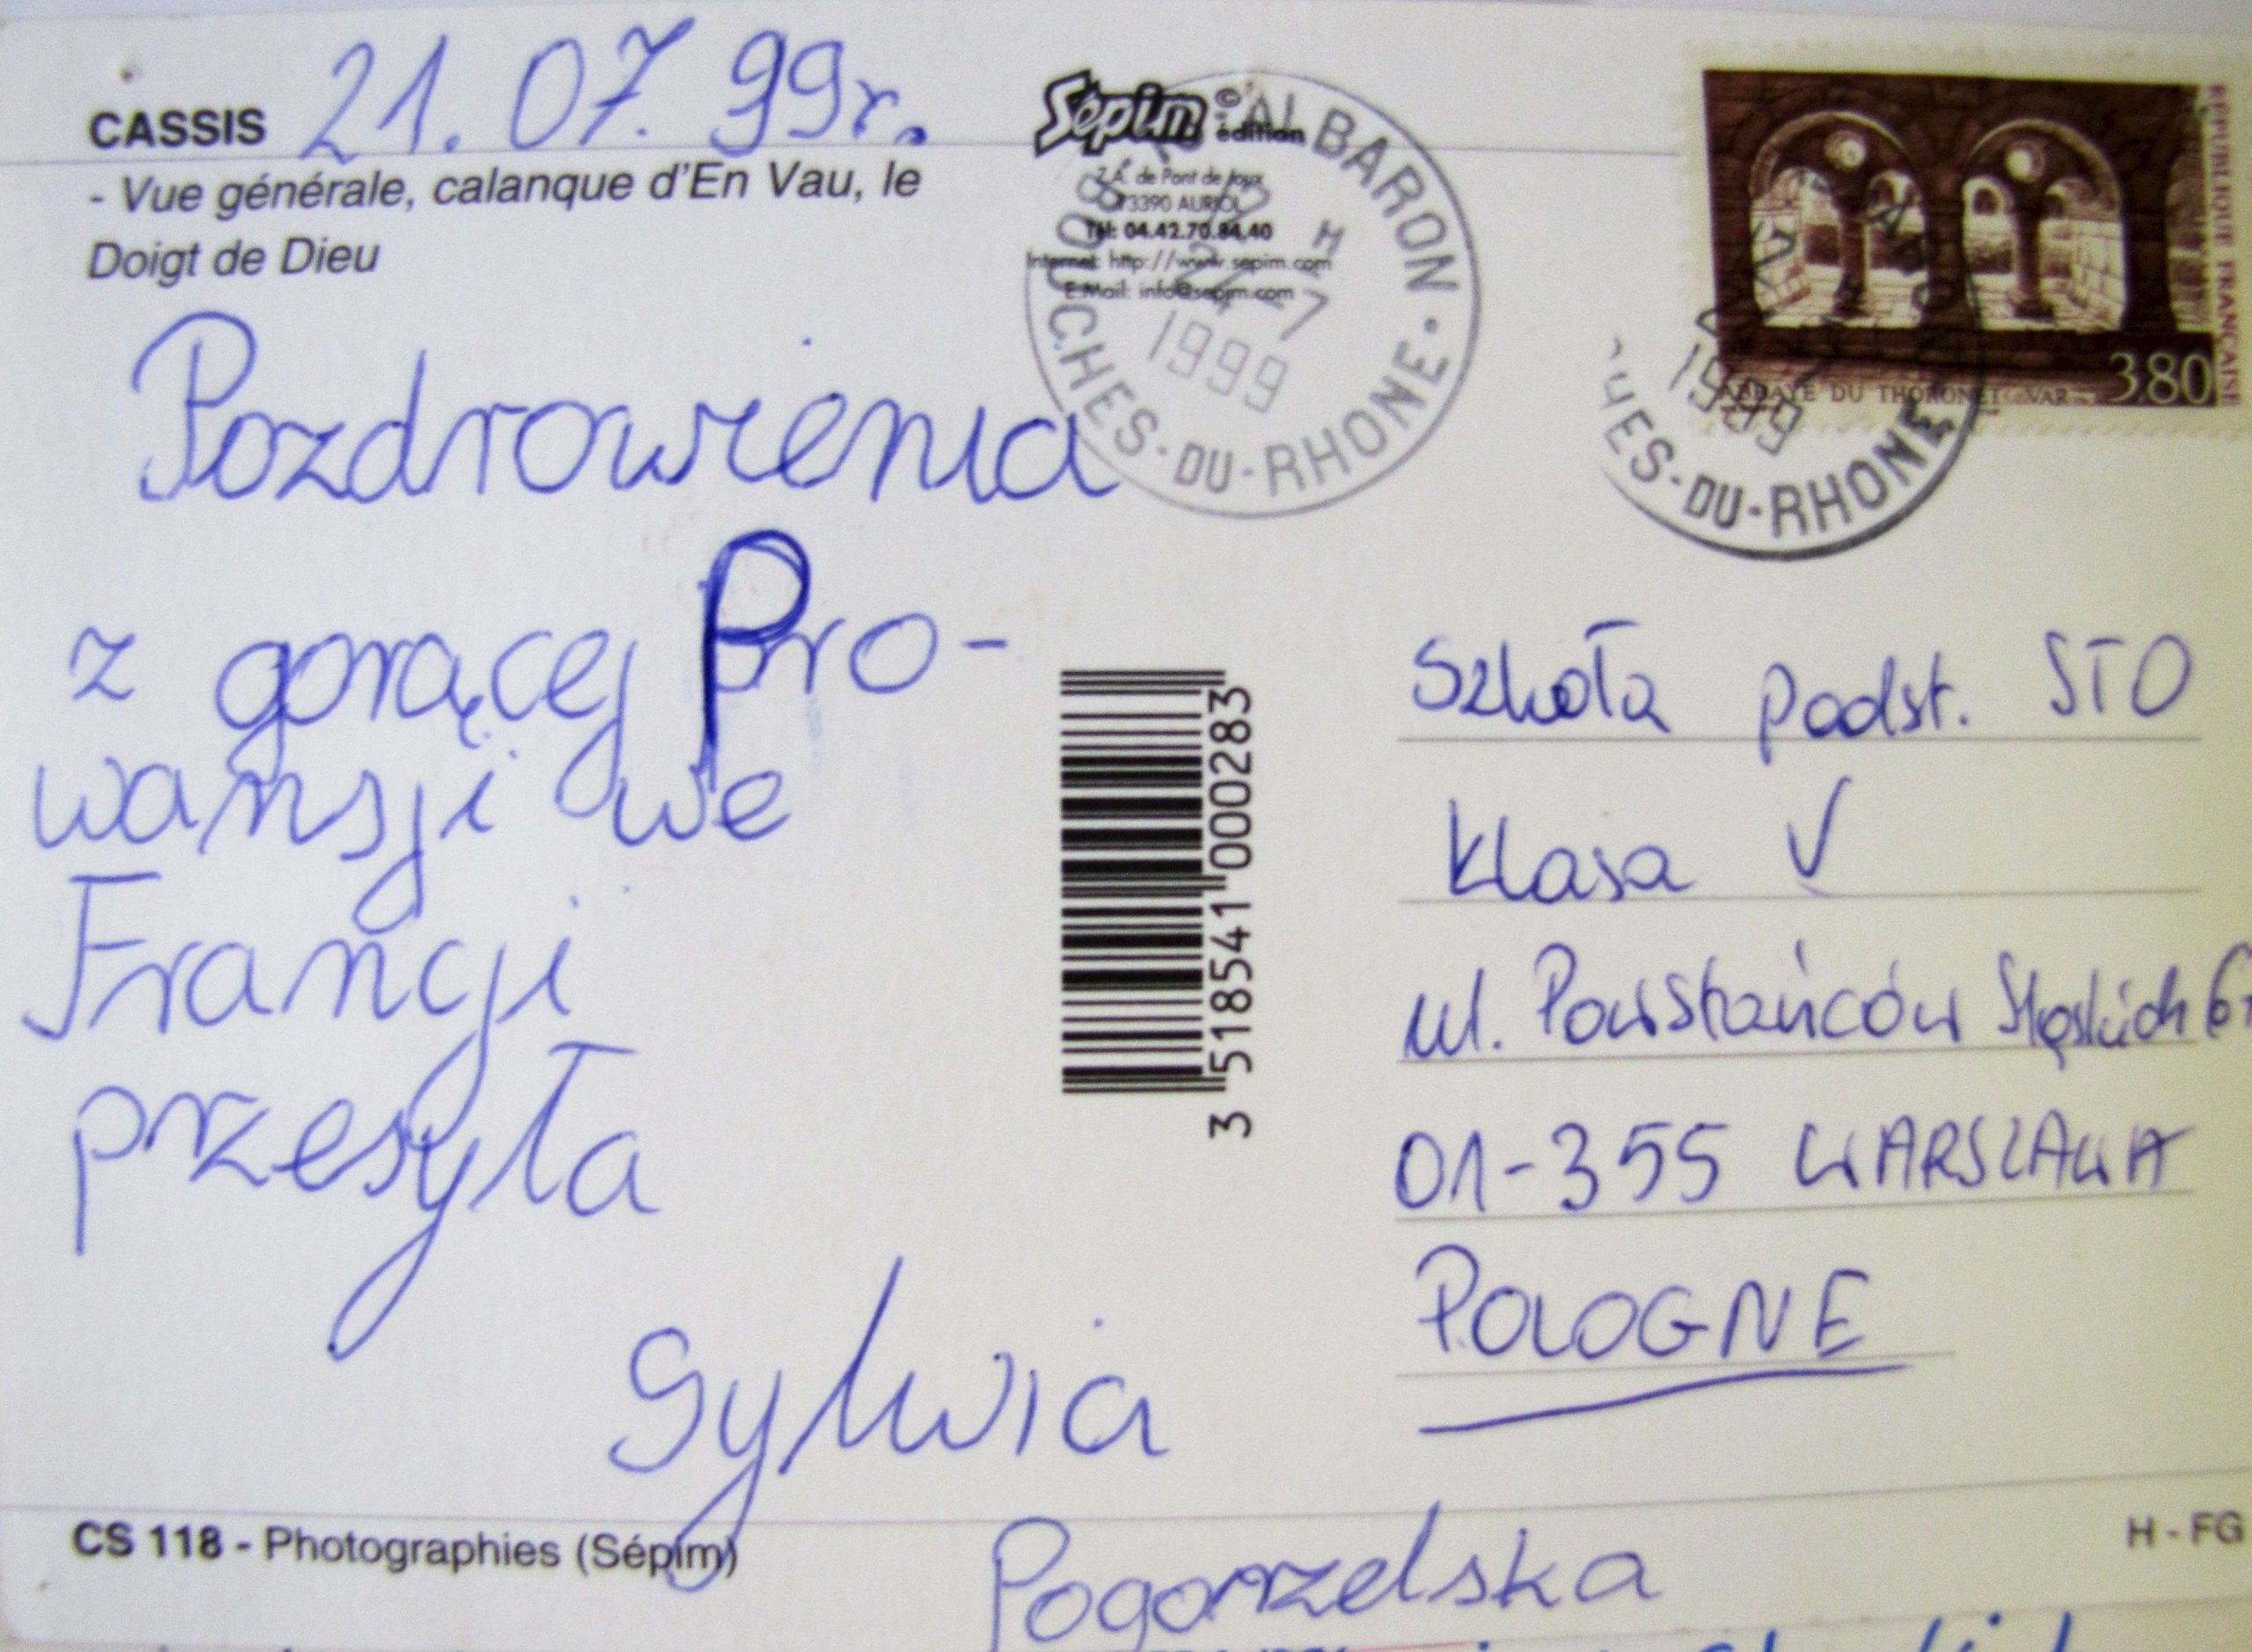 CASSIS 21.07.99r.
- Vue générale, calanque d'En Vau, le
Doigt de Dieu
Sépim © édition
Z.A. de Pont de Joux
13390 AURIOL
Tél: 04.42.70.84.40
Internet: http://www.sepim.com
E.Mail: info@sepim.com
ALBARON
H
-7
1999
BOUCHES-DU-RHONE
RÉPUBLIQUE FRANÇAISE
3,80
ABBAYE DU THORONET VAR
1999
UCHES-DU-RHONE
Pozdrowienia
z gorącej Pro-
wansji we
Francji
przesyła
Sylwia
Pogorzelska
3 518541 000283
Szkoła Podst. STO
Klasa V
ul. Powstańców Śląskich
01-355 WARSZAWA
POLOGNE
CS 118 - Photographies (Sépim)
H - FG